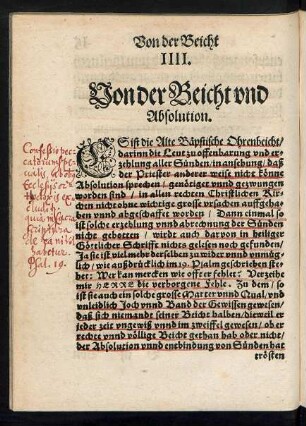 Von der Beicht
IIII.
Von der Beicht vnd
Absolution.
ES ist die Alte Bäpstische Ohrenbeicht/
darinn die Leut zu offenbarung vnd er=
zehlung aller Sünden/ in ansehung/ daß
der Priester anderer weise nicht könne
Absolution sprechen / genötiget vnnd gezwungen
worden sind / in allen rechten Christlichen Kir=
chen nicht ohne wichtige grosse vrsachen auffgeha=
ben vnnd abgeschaffet worden / Dann einmal so
ist solche erzehlung vnnd abrechnung der Sünden
nicht gebotten / wirdt auch daruon in heiliger
Göttlicher Schrifft nichts gelesen noch gefunden/
Ja sie ist viel mehr derselben zu wider vnnd vnmüg=
lich / wie außdrücklich im 19. Psalm geschrieben ste=
het: Wer kan mercken wie offt er fehlet: Verzeihe
mir HERRE die verborgene Fehle. Zu dem / so
ist sie auch ein solche grosse Marter vnnd Qual, vnd
vnleidlich Joch vnnd Band der Gewissen gewesen/
daß sich niemandt seiner Beicht halben/ dieweil er
jeder zeit vngewiß vnnd im zweiffel gewesen / ob er
rechte vnnd völlige Beicht gethan hab oder nicht/
der Absolution vnnd entbindung von Sünden hat
trösten
Confessio pec=
catorum
Ecclesijs
quia in sacra
Scriptura
Psal. 19.